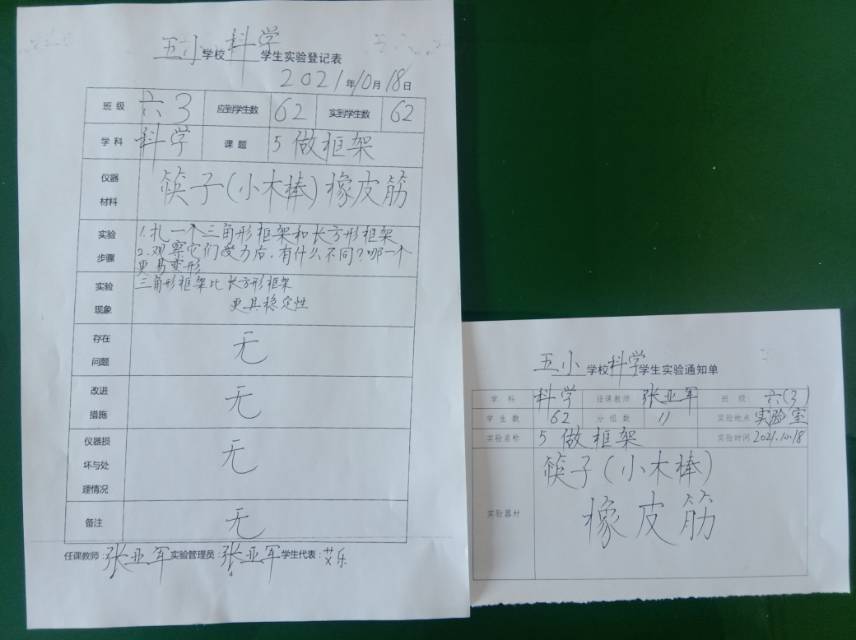 五小学校科学学生实验登记表
2021年10月18日
班级 六3 应到学生数 62 实到学生数 62
学科 科学 课题 5 做框架
仪器材料 筷子(小木棒)橡皮筋
实验步骤 1.扎一个三角形框架和长方形框架
2.观察它们受力后,有什么不同?哪一个
更易变形
实验现象 三角形框架比长方形框架
更具稳定性
存在问题 无
改进措施 无
仪器损坏与处理情况 无
备注 无
任课教师:张亚军 实验管理员:张亚军 学生代表:艾乐
五小学校科学学生实验通知单
学科 科学 任课教师 张亚军 班级 六(3)
学生数 62 分组数 11 实验地点 实验室
实验名称 5 做框架 实验时间 2021.10.18
实验器材 筷子(小木棒)
橡皮筋